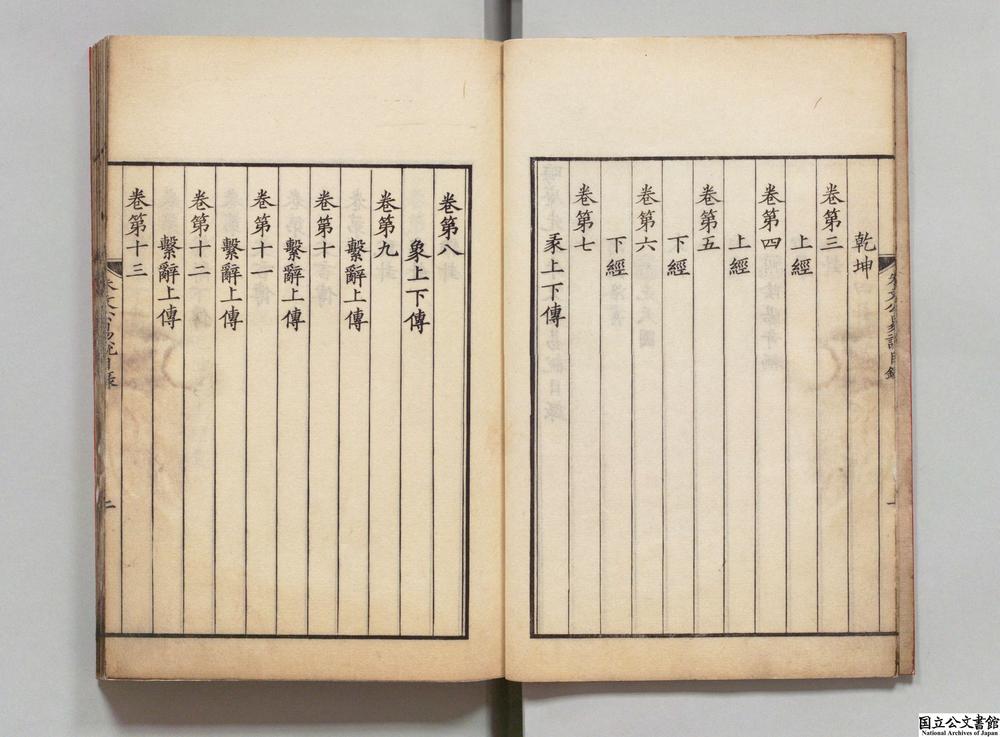 乾坤
卷第三
上經
卷第四
上經
卷第五
下經
卷第六
下經
卷第七
彖上下傳
卷第八
象上下傳
卷第九
繫辭上傳
卷第十
繫辭上傳
卷第十一
繫辭上傳
卷第十二
繫辭上傳
卷第十三
朱文公易說目錄
一
二
国立公文書館
National Archives of Japan